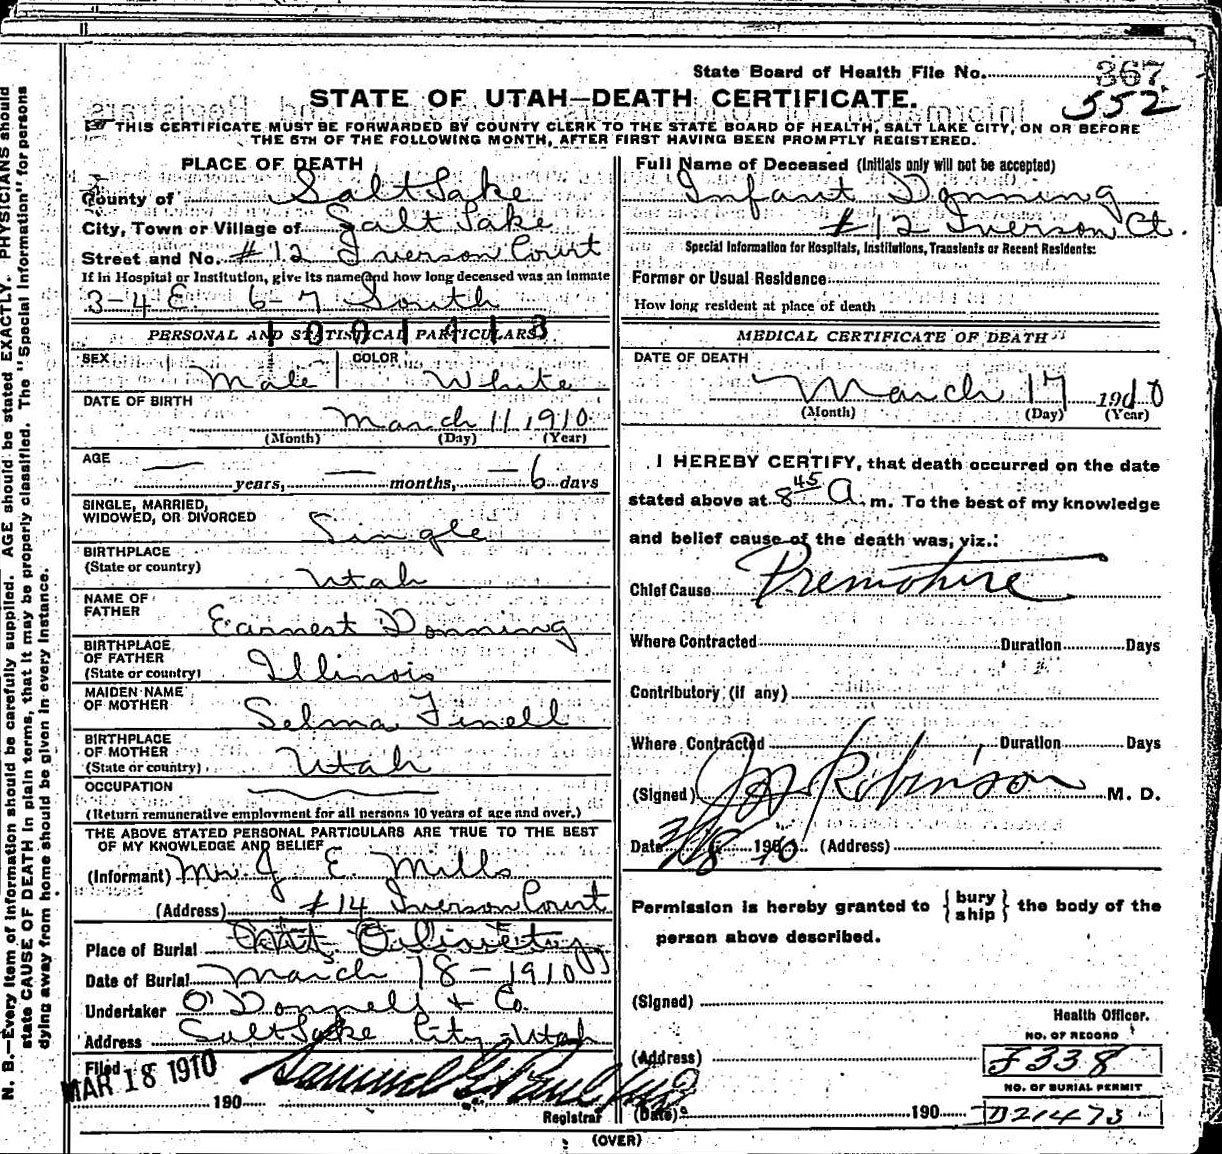 State Board of Health File No. 367
552
STATE OF UTAH—DEATH CERTIFICATE.
THIS CERTIFICATE MUST BE FORWARDED BY COUNTY CLERK TO THE STATE BOARD OF HEALTH, SALT LAKE CITY, ON OR BEFORE
THE 5TH OF THE FOLLOWING MONTH, AFTER FIRST HAVING BEEN PROMPTLY REGISTERED.
PLACE OF DEATH
County of Salt Lake
City, Town or Village of Salt Lake
Street and No. #12 Iverson Court
If in Hospital or Institution, give its name and how long deceased was an inmate
3-4 E 6-7 South
1001413
PERSONAL AND STATISTICAL PARTICULARS
SEX Male COLOR White
DATE OF BIRTH
March 11, 1910
(Month) (Day) (Year)
AGE
— years, — months, — 6 days
SINGLE, MARRIED,
WIDOWED, OR DIVORCED Single
BIRTHPLACE
(State or country) Utah
NAME OF
FATHER Earnest Donning
BIRTHPLACE
OF FATHER
(State or country) Illinois
MAIDEN NAME
OF MOTHER Selma Finell
BIRTHPLACE
OF MOTHER
(State or country) Utah
OCCUPATION
(Return remunerative employment for all persons 10 years of age and over.)
THE ABOVE STATED PERSONAL PARTICULARS ARE TRUE TO THE BEST
OF MY KNOWLEDGE AND BELIEF
(Informant) Mr. J E. Mills
(Address) #14 Iverson Court
Place of Burial Mt. Olivet
Date of Burial March 18-1910
Undertaker O'Donnell & Co.
Address Salt Lake City, Utah
Filed
MAR 18 1910
190
Samuel G. Paul
Registrar
Full Name of Deceased (Initials only will not be accepted)
Infant Donning
#12 Iverson Ct.
Special Information for Hospitals, Institutions, Transients or Recent Residents:
Former or Usual Residence
How long resident at place of death
MEDICAL CERTIFICATE OF DEATH
DATE OF DEATH
March 17 1910
(Month) (Day) (Year)
I HEREBY CERTIFY, that death occurred on the date
stated above at 8 45 A. m. To the best of my knowledge
and belief cause of the death was, viz.:
Chief Cause Premature
Where Contracted Duration Days
Contributory (if any)
Where Contracted Duration Days
(Signed) Robinson M. D.
Date 3/18 1910 (Address)
Permission is hereby granted to {bury ship} the body of the
person above described.
(Signed)
Health Officer.
(Address)
NO. OF RECORD
J338
NO. OF BURIAL PERMIT
(Date) 190 D21473
(OVER)
N. B.—Every item of information should be carefully supplied. AGE should be stated EXACTLY. PHYSICIANS should
state CAUSE OF DEATH in plain terms, that it may be properly classified. The "Special Information" for persons
dying away from home should be given in every instance.